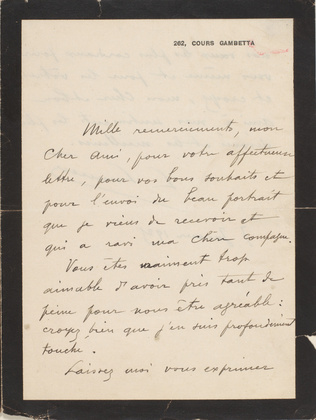 262, COURS GAMBETTA
Mille remerciments, mon
cher ami, pour votre affectueuse
lettre, pour vos bons souhaits et
pour l'envoi du beau portrait
que je viens de recevoir et
qui a ravi ma chère compagne.
Vous êtes vraiment trop
aimable d'avoir pris tant de
peine pour nous être agréable :
croyez bien que j'en suis profondément
touché.
Laissez moi vous exprimer